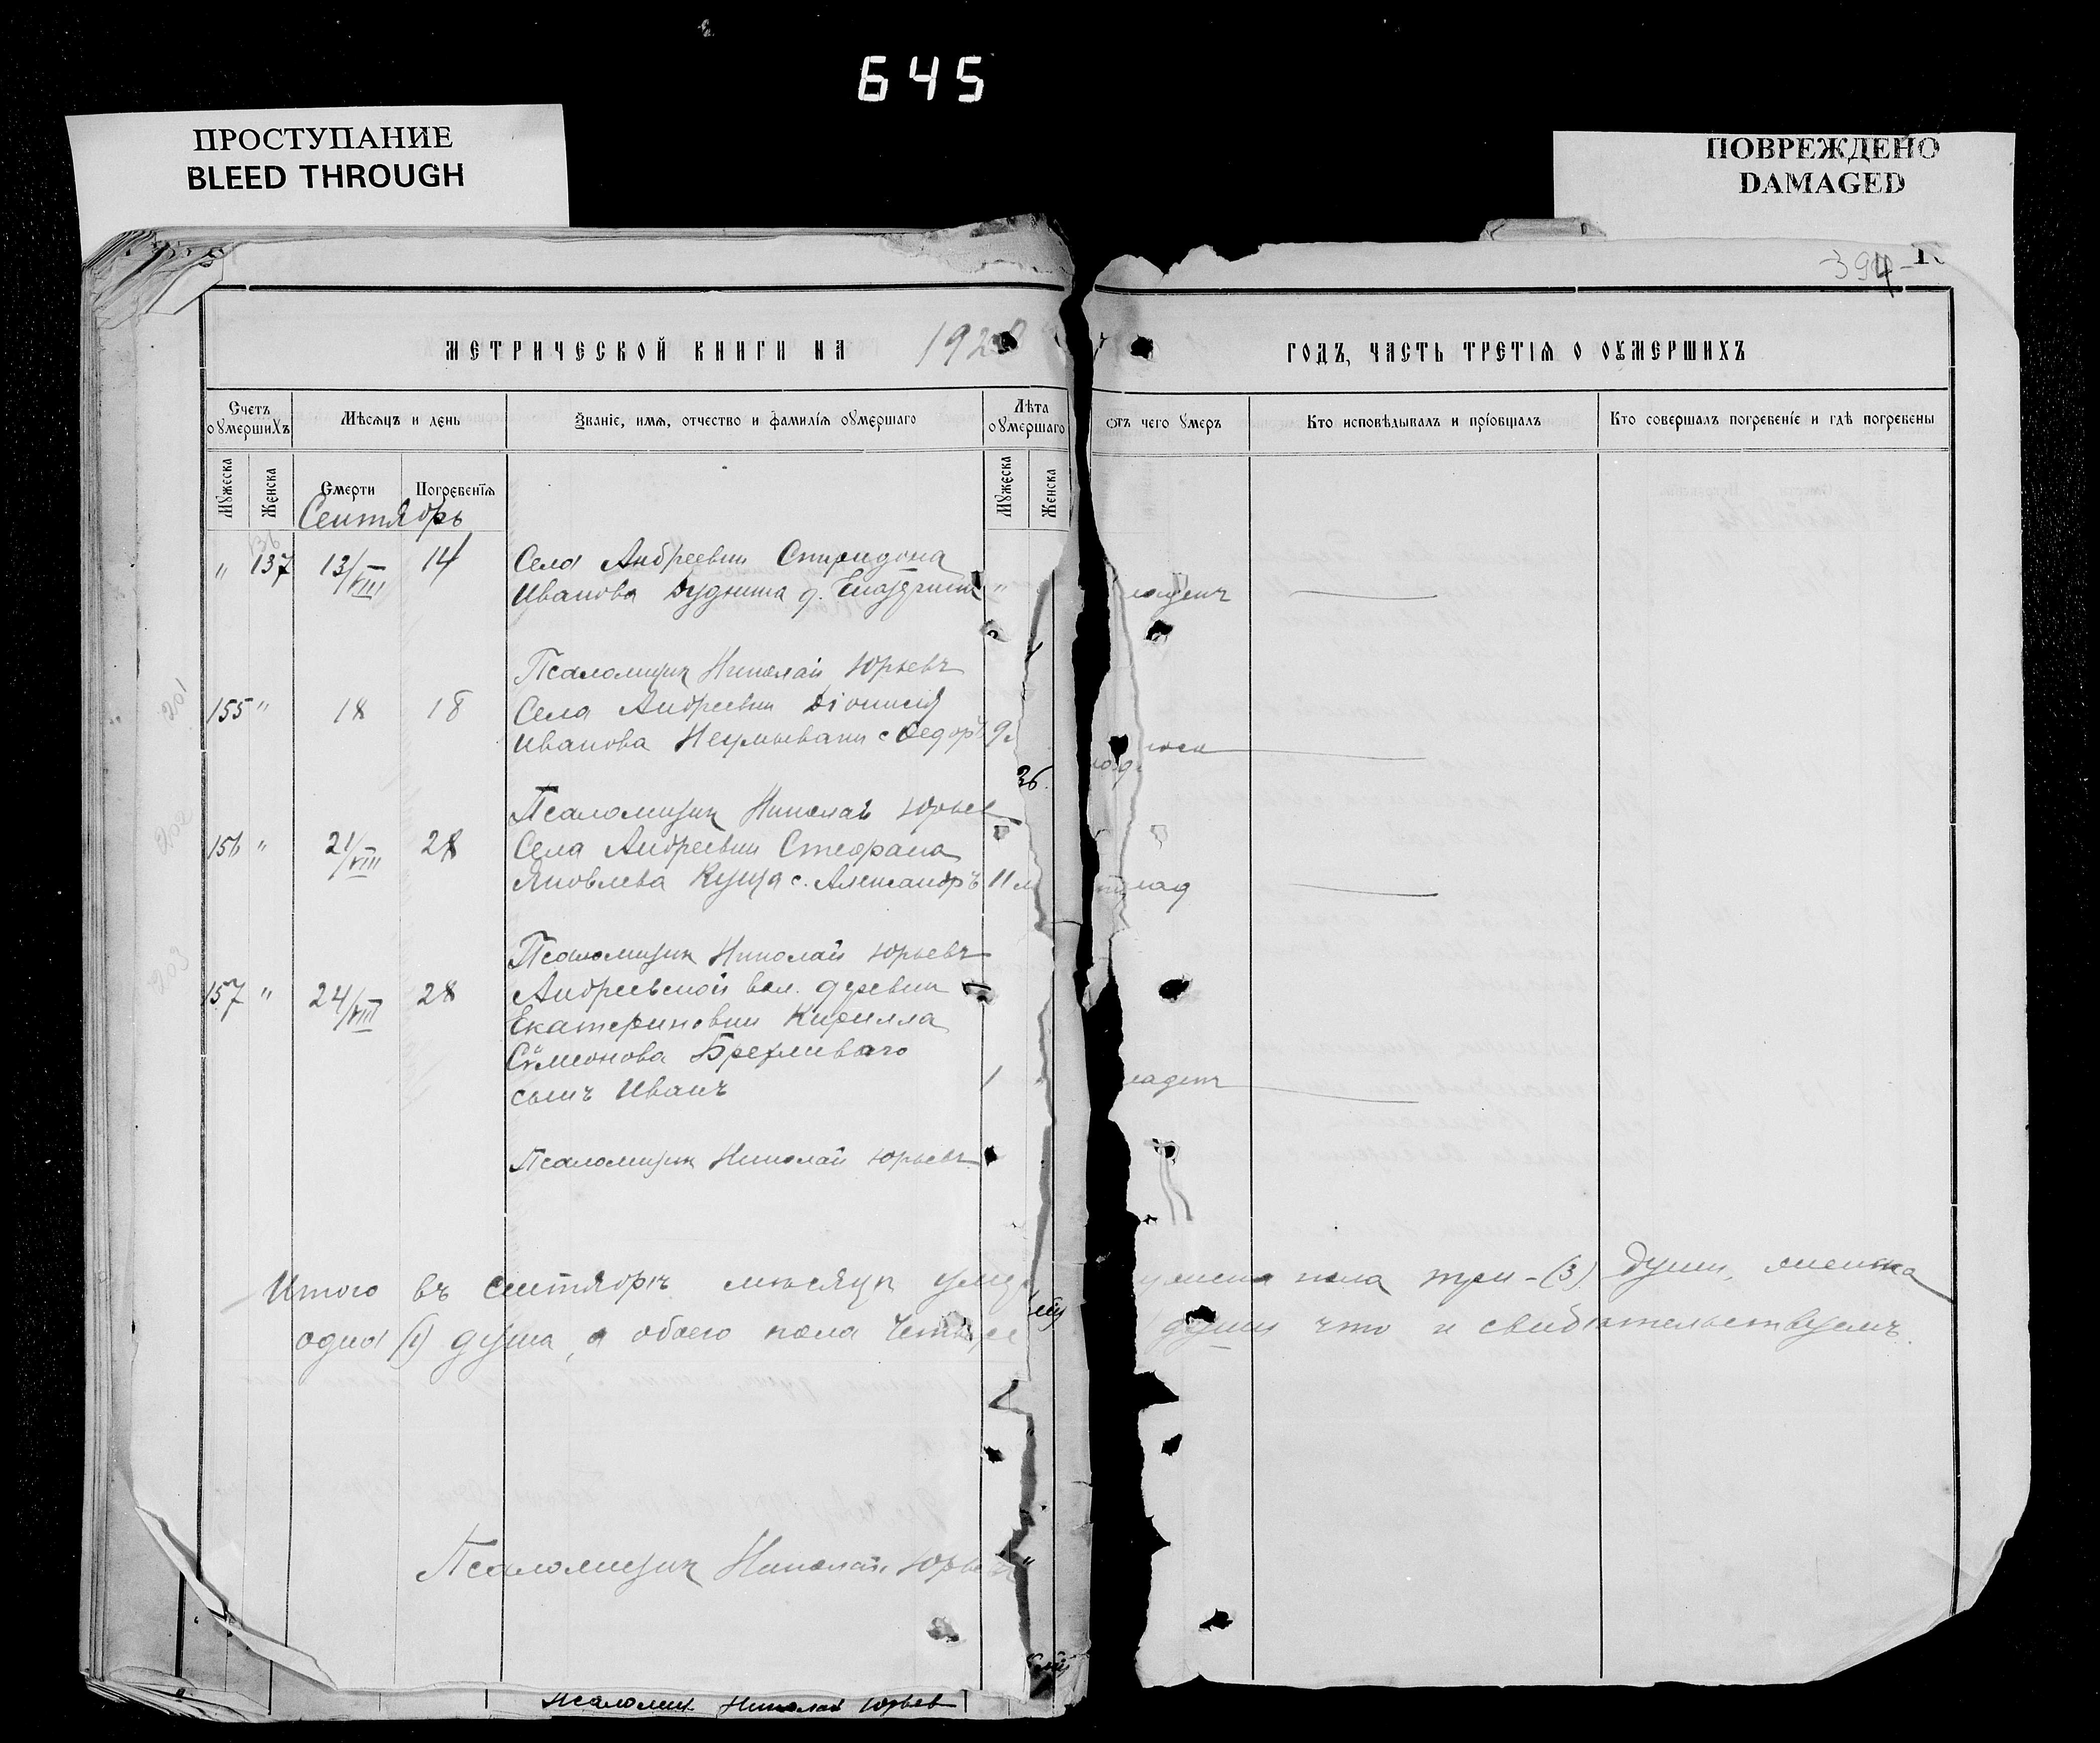 645
ПРОСТУПАНИЕ
BLEED THROUGH
ПОВРЕЖДЕНО
DAMAGED
394
МЕТРИЧЕСКОЙ КНИГИ НА 192
ГОДЪ, ЧАСТЬ ТРЕТІЯ О ОУМЕРШИХЪ
Счетъ оумершихъ
Мѣсяцъ и день
Званіе, имя, отчество и фамилія оумершаго
Лѣта оумершаго
отъ чего умеръ
Кто исповѣдывалъ и пріобщалъ
Кто совершалъ погребеніе и гдѣ погребены
Мужеска
Женска
Смерти
Погребенїя
Мужеска
Женска
Сентябрь
" 137 13/VIII 14 Села Андреевки Спиридона
Иванова Дудника д.
Псаломщик Николай Юрьевъ
155 " 18 18 Села Андреевки Діонисія
Иванова Неумывани с Ѳедоръ 9
36.
Псаломщик Николай Юрьев
156 " 21/VIII 28 Села Андреевки Стефана
Яковлева Куща с. Александръ 11 м
Псаломщик Николай Юрьевъ
157 " 24/VIII 28 Андреевской вол. деревни
Екатериновки Кирилла
Сѵмеонова Брехливаго
сынъ Иванъ 1
Псаломщик Николай Юрьевъ
Итого въ сентябрѣ мѣсяцѣ умер пола три - (3) души, женска
одна (1) душа, а обоего пола четыре души что и свидѣтельствуемъ.
Псаломщик Николай Юрьевъ
Псаломщ. Николай Юрьев
201
202
203